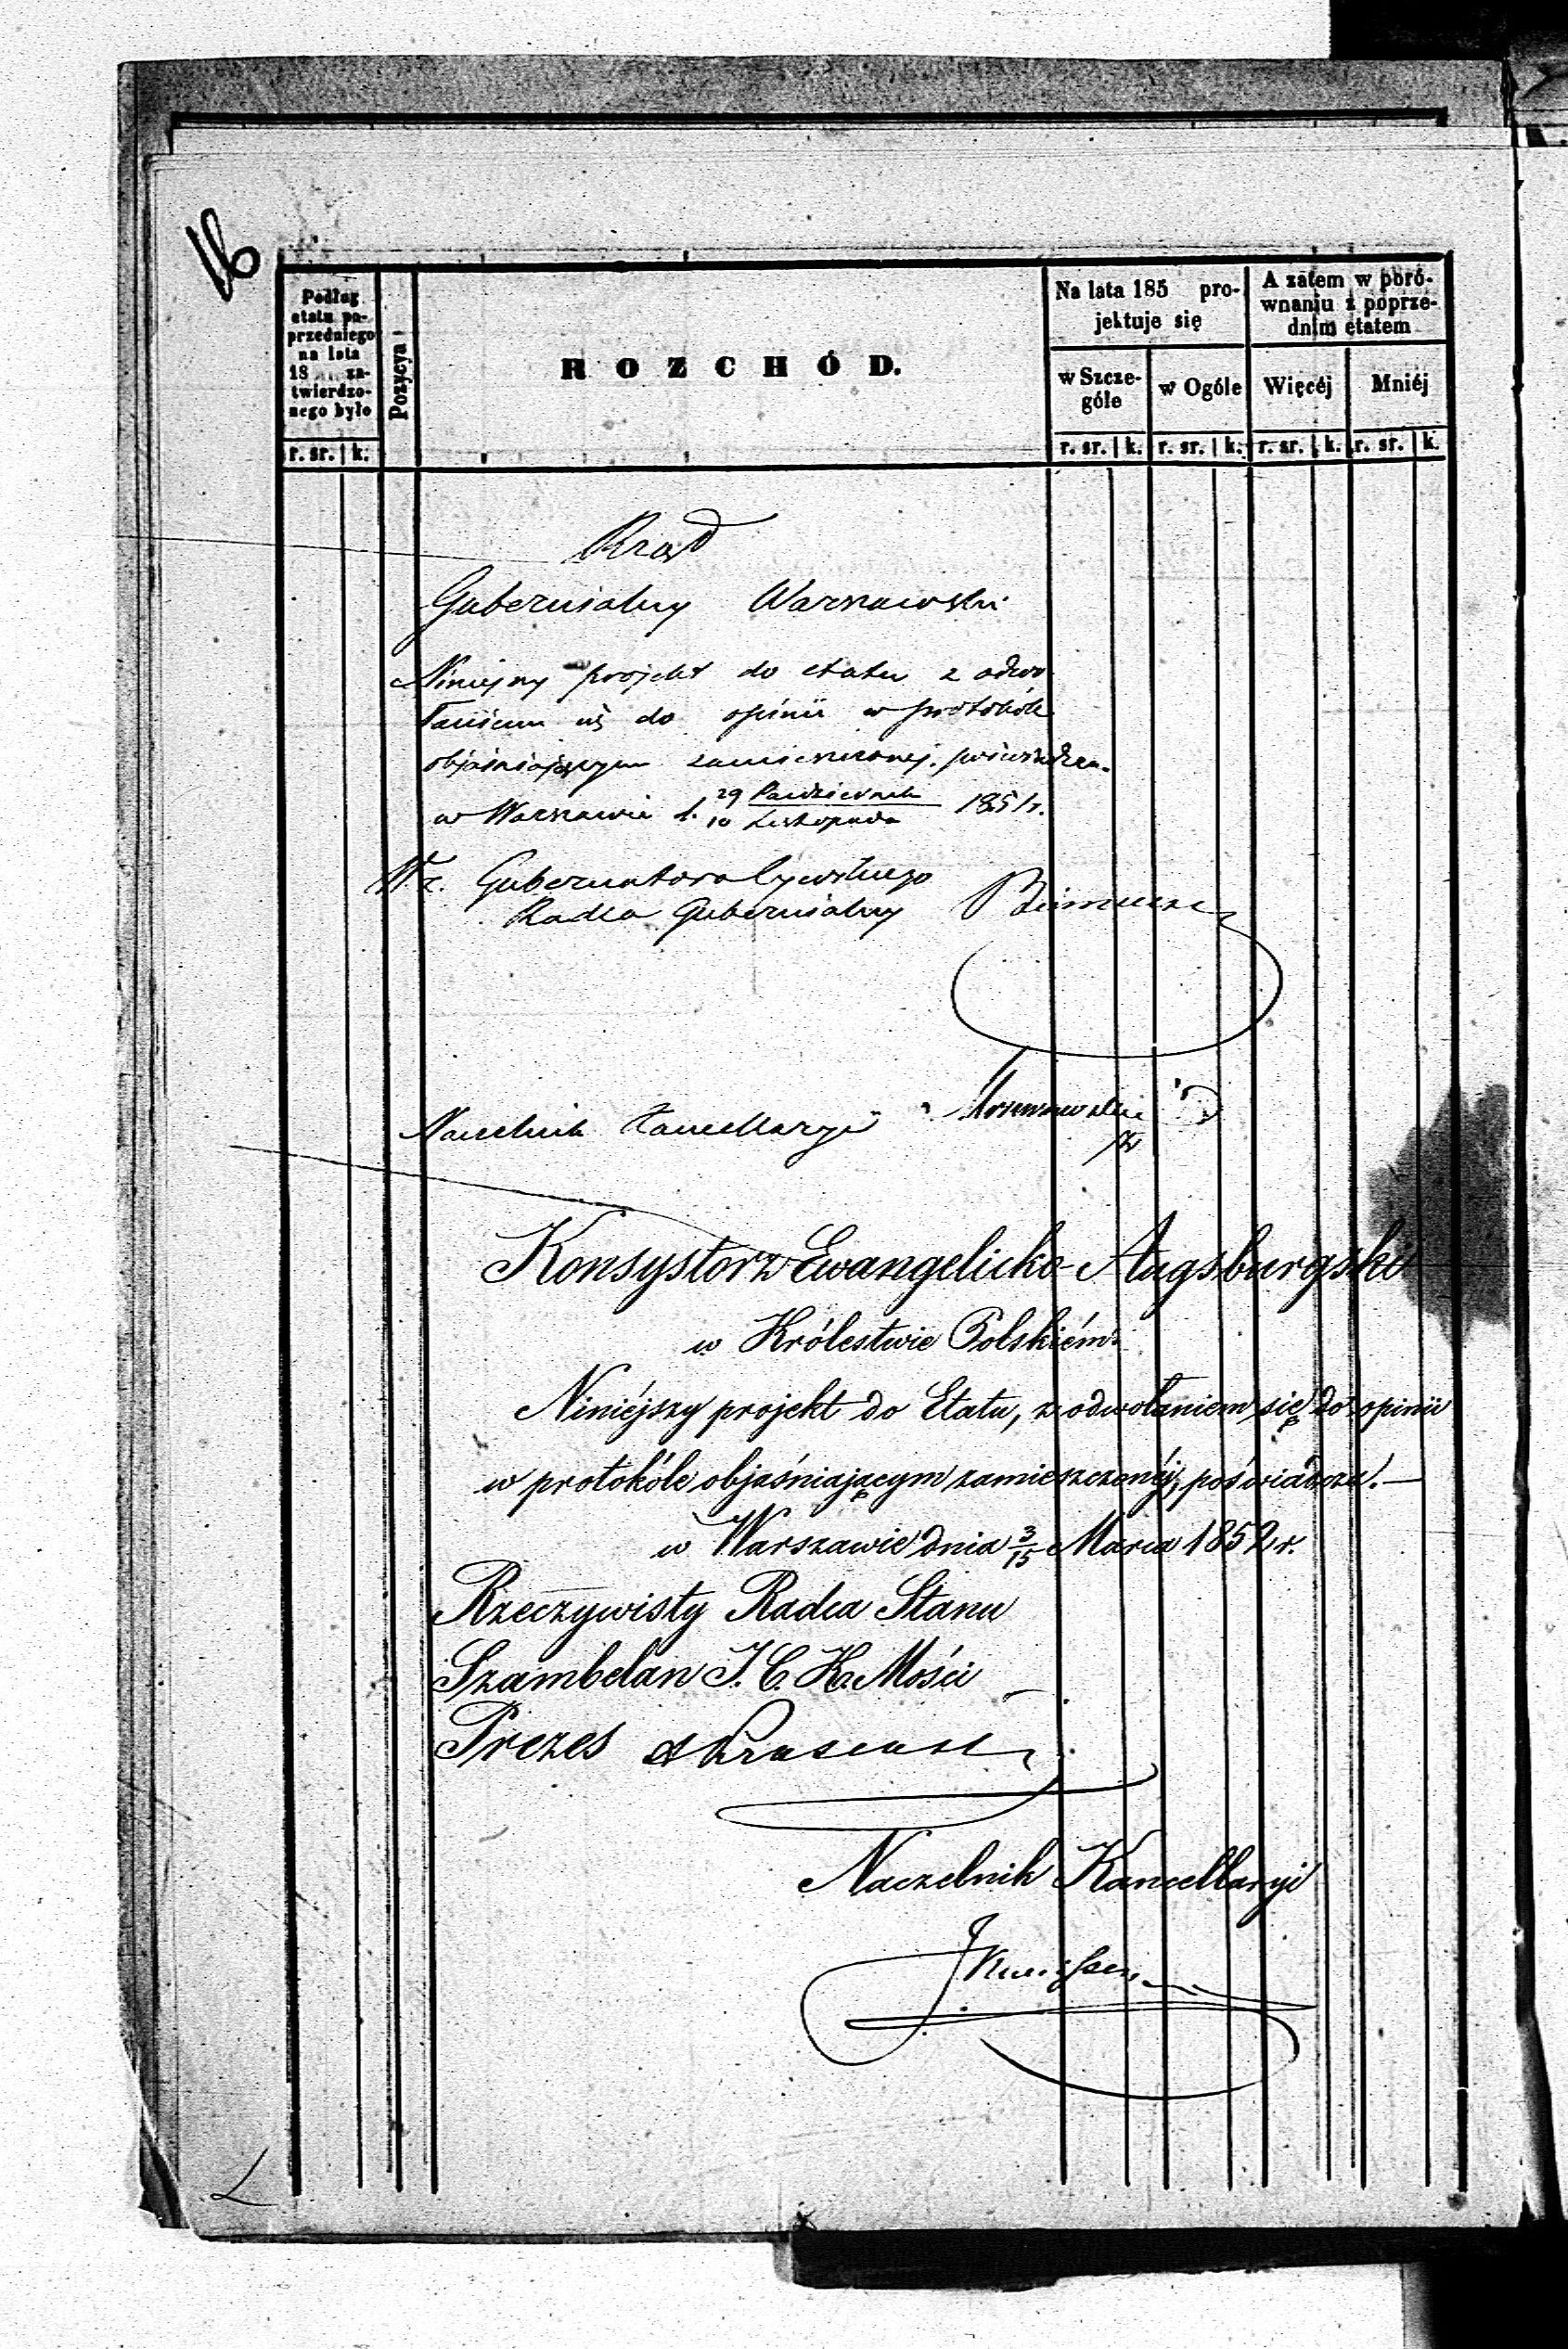 16
Podług
etatu po-
przedniego
na lata
18 za-
twierdzo-
nego było
Pozycya
ROZCHÓD.
Na lata 185 pro-
jektuje się
A zatem w poró-
wnaniu z poprze-
dnim etatem
w Szcze-
góle
w Ogóle
Więcéj
Mniéj
r. sr. k.
r. sr. k. r. sr. k. r. sr. k. r. sr. k.
Rząd
Gubernialny Warszawski
Niniejszy projekt do etatu z odwo
łaniem się do opinii w protokóle
objaśniającym zamieszczonej, poświadcza.
w Warszawie d. 29 Października / 10 Listopada 1851 r.
Wz. Gubernatora Cywilnego
Radca Gubernialny
Naczelnik Kancellaryi
Konsystorz Ewangelicko-Augsburgski
w Królestwie Polskiém.
Niniéjszy projekt do Etatu, z odwołaniem się do opinii
w protokóle objaśniającym zamieszczonéj, poświadcza.—
w Warszawie dnia 3/15 Marca 1852 r.
Rzeczywisty Radca Stanu
Szambelan J. C. K. Mości
Prezes
Naczelnik Kancellaryi